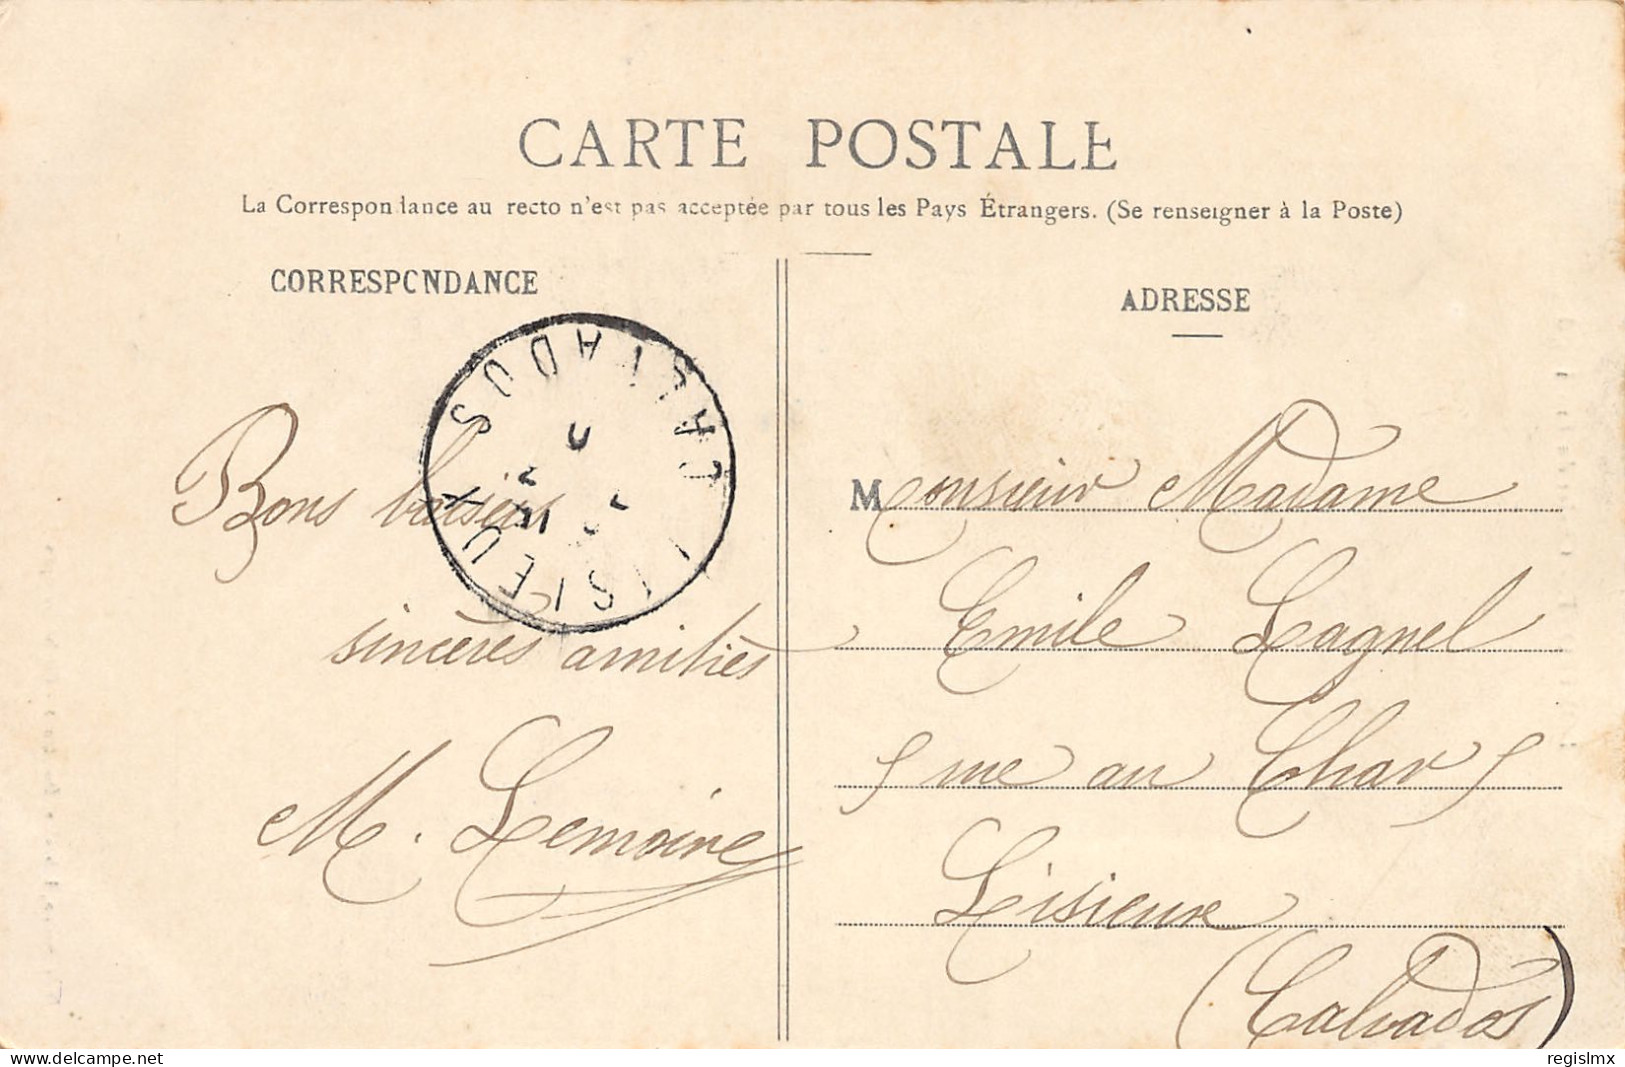 CARTE POSTALE
La Correspondance au recto n'est pas acceptée par tous les Pays Étrangers. (Se renseigner à la Poste)
CORRESPONDANCE
ADRESSE
LISIEUX CALVADOS
Bons baisers
sincères amitiés
M. Lemoine
Monsieur Madame
Emile Lagnel
rue au Char
Lisieux
(Calvados)
delcampe.net
regislmx